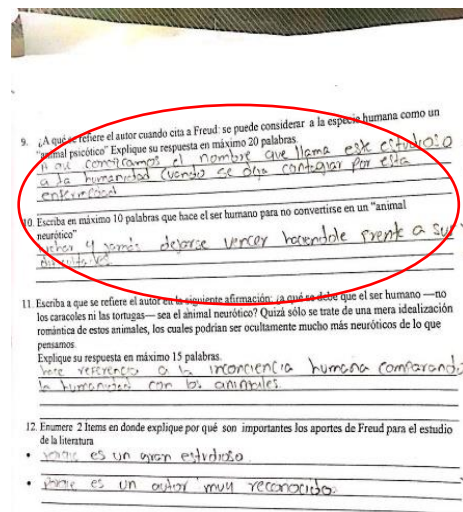 9. ¿A qué se refiere el autor cuando cita a Freud: se puede considerar a la especie humana como un
"animal psicótico" Explique su respuesta en máximo 20 palabras.
conozcamos el nombre que llama este estudioso
a la humanidad cuando se deja contagiar por esta
enfermedad
10. Escriba en máximo 10 palabras que hace el ser humano para no convertirse en un "animal
neurótico"
luchar y jamás dejarse vencer haciendole frente a sus
dificultades
11. Escriba a que se refiere el autor en la siguiente afirmación: ¿a qué se debe que el ser humano —no
los caracoles ni las tortugas— sea el animal neurótico? Quizá sólo se trate de una mera idealización
romántica de estos animales, los cuales podrían ser ocultamente mucho más neuróticos de lo que
pensamos.
Explique su respuesta en máximo 15 palabras.
hace referencia a la inconciencia humana comparando
la humanidad con los animales.
12. Enumere 2 Items en donde explique por qué son importantes los aportes de Freud para el estudio
de la literatura
• porque es un gran estudioso.
• porque es un autor muy reconocido.